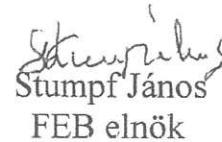 Stumpf János
FEB elnök